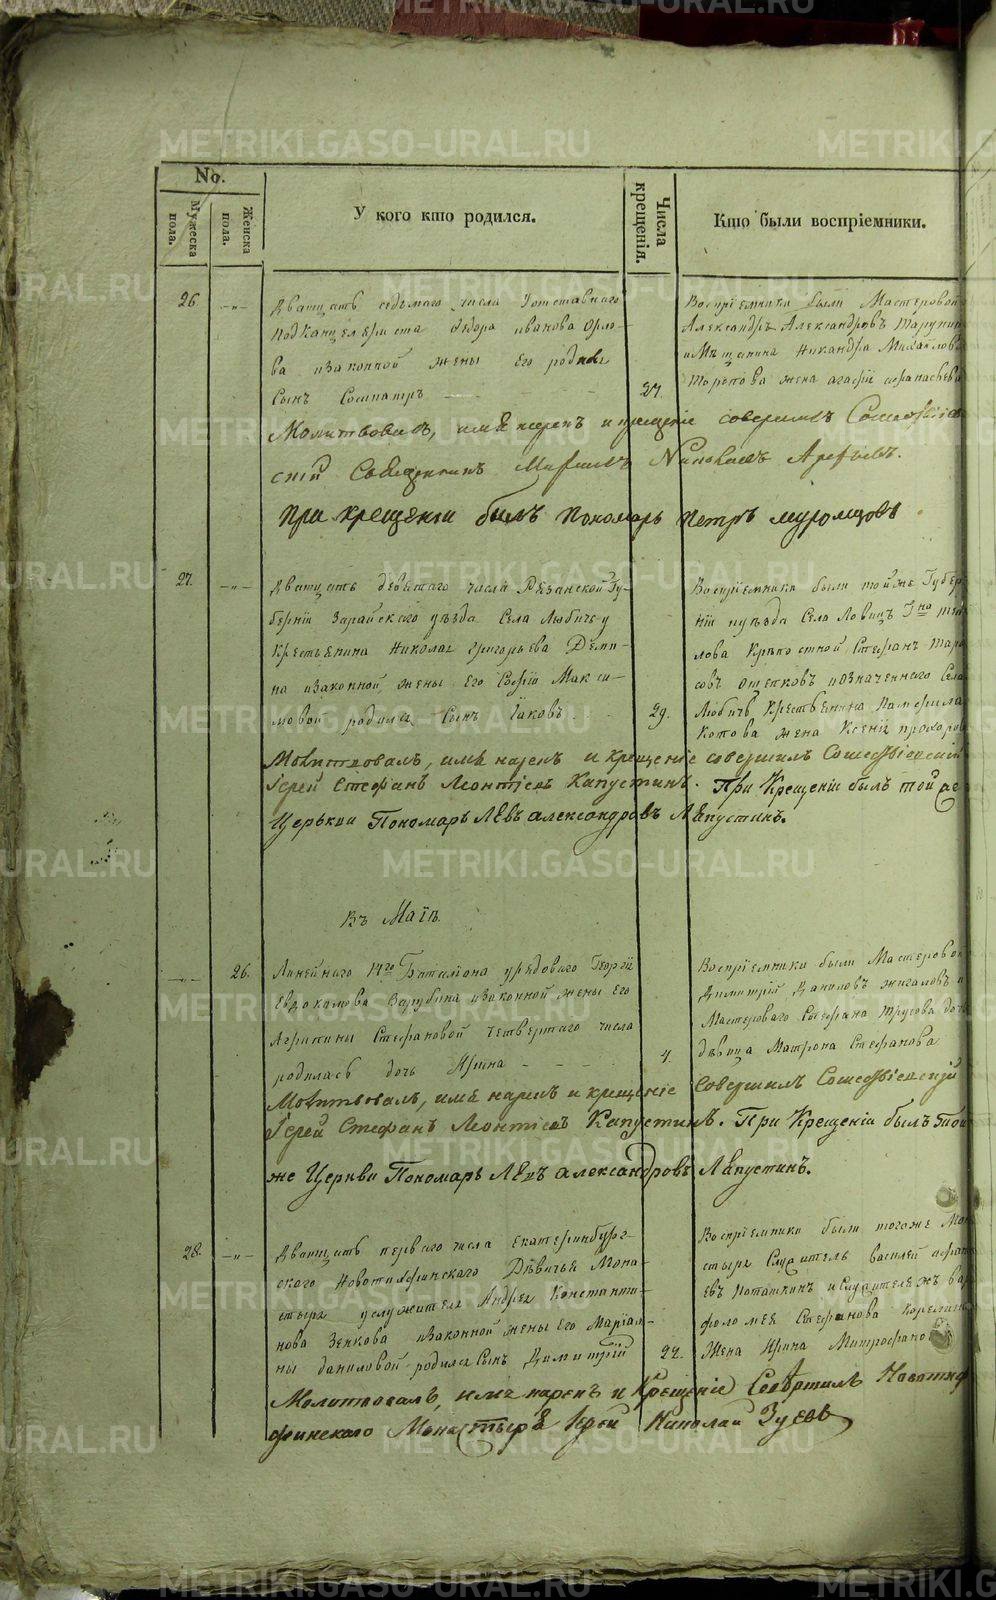 No.
Мужеска пола.
Женска пола.
У кого кто родился.
Числа крещенія.
Кто были воспріемники.
26
Дватцать седьмаго числа Уотставнаго
подканцеляриста Федора иванова Орло-
ва изаконной жены Его родился
Сынъ Сосипатръ
27.
Воспріемники были Мастеровой
Александръ Александровъ
имѣщанина Никандра Михайлова
жена агафiи
Молитвовалъ, имя нарекъ и крещеніе совершилъ Сошествіев
скiй Священникъ Михаилъ Николаевъ Арефьевъ.
При крещеніи былъ Пономарь Петръ муромцовъ
27.
Дватцать девятаго числа Рязанской Гу-
берніи Зарайского уѣзда Села Любичь у
Крестьянина Николая Григорьева Деми-
на изаконной жены Его Софіи Макси-
мовой родился Сынъ Іаковъ
29.
Воспріемники были тойже Губер
ніи иуѣзда Села Ловцъ
лова Крѣпостной Стефанъ Тара
совъ иозначеннаго Села
Любичь Крестьянина Памфила
Котова жена Ксенія прохоров
Молитвовалъ, имя нарекъ и крещеніе совершилъ Сошествіевскій
Іерей Стефанъ Леонтіевъ Капустинъ. При Крещеніи былъ той же
Церькви Пономарь Левъ александровъ Ляпустинъ.
Въ Маіѣ
26.
Линейнаго 14го Баталіона урядоваго Георгія
Евдокимова Зарубина изаконной жены Его
Агрипины Стефановой Четвертаго числа
родилась дочь Ирина
4.
Воспріемники были Мастеровой
Димитрій Даниловъ жигаловъ и
Мастероваго Стефана Трусова дочь
дѣвица Матрона Стефанова
Молитвовалъ, имя нарекъ и крещеніе совершилъ Сошествіевскій
Іерей Стефанъ Леонтіевъ Капустинъ. При Крещеніи былъ Той
же Церкви Пономарь Левъ александровъ Ляпустинъ.
28.
Дватцать перваго числа Екатеринбург-
ского Новотихвинскаго Дѣвичья Мона-
стыря услужителя Андрея Константи-
нова Зенкова изаконной жены Его Маріам-
ны даниловой родился Сынъ Димитрій
22.
Воспріемники были тогоже Мона
стыря Служитель василей афана
евъ Поташкинъ иСлужителяжъ вар
фоломея Стефанова
Жена Ирина Митрофанов
Молитвовалъ, имя нарекъ и Крещеніе Совершилъ Новотих
финскаго Монастыря Іерей Николай Зуевъ
METRIKI.GASO-URAL.RU